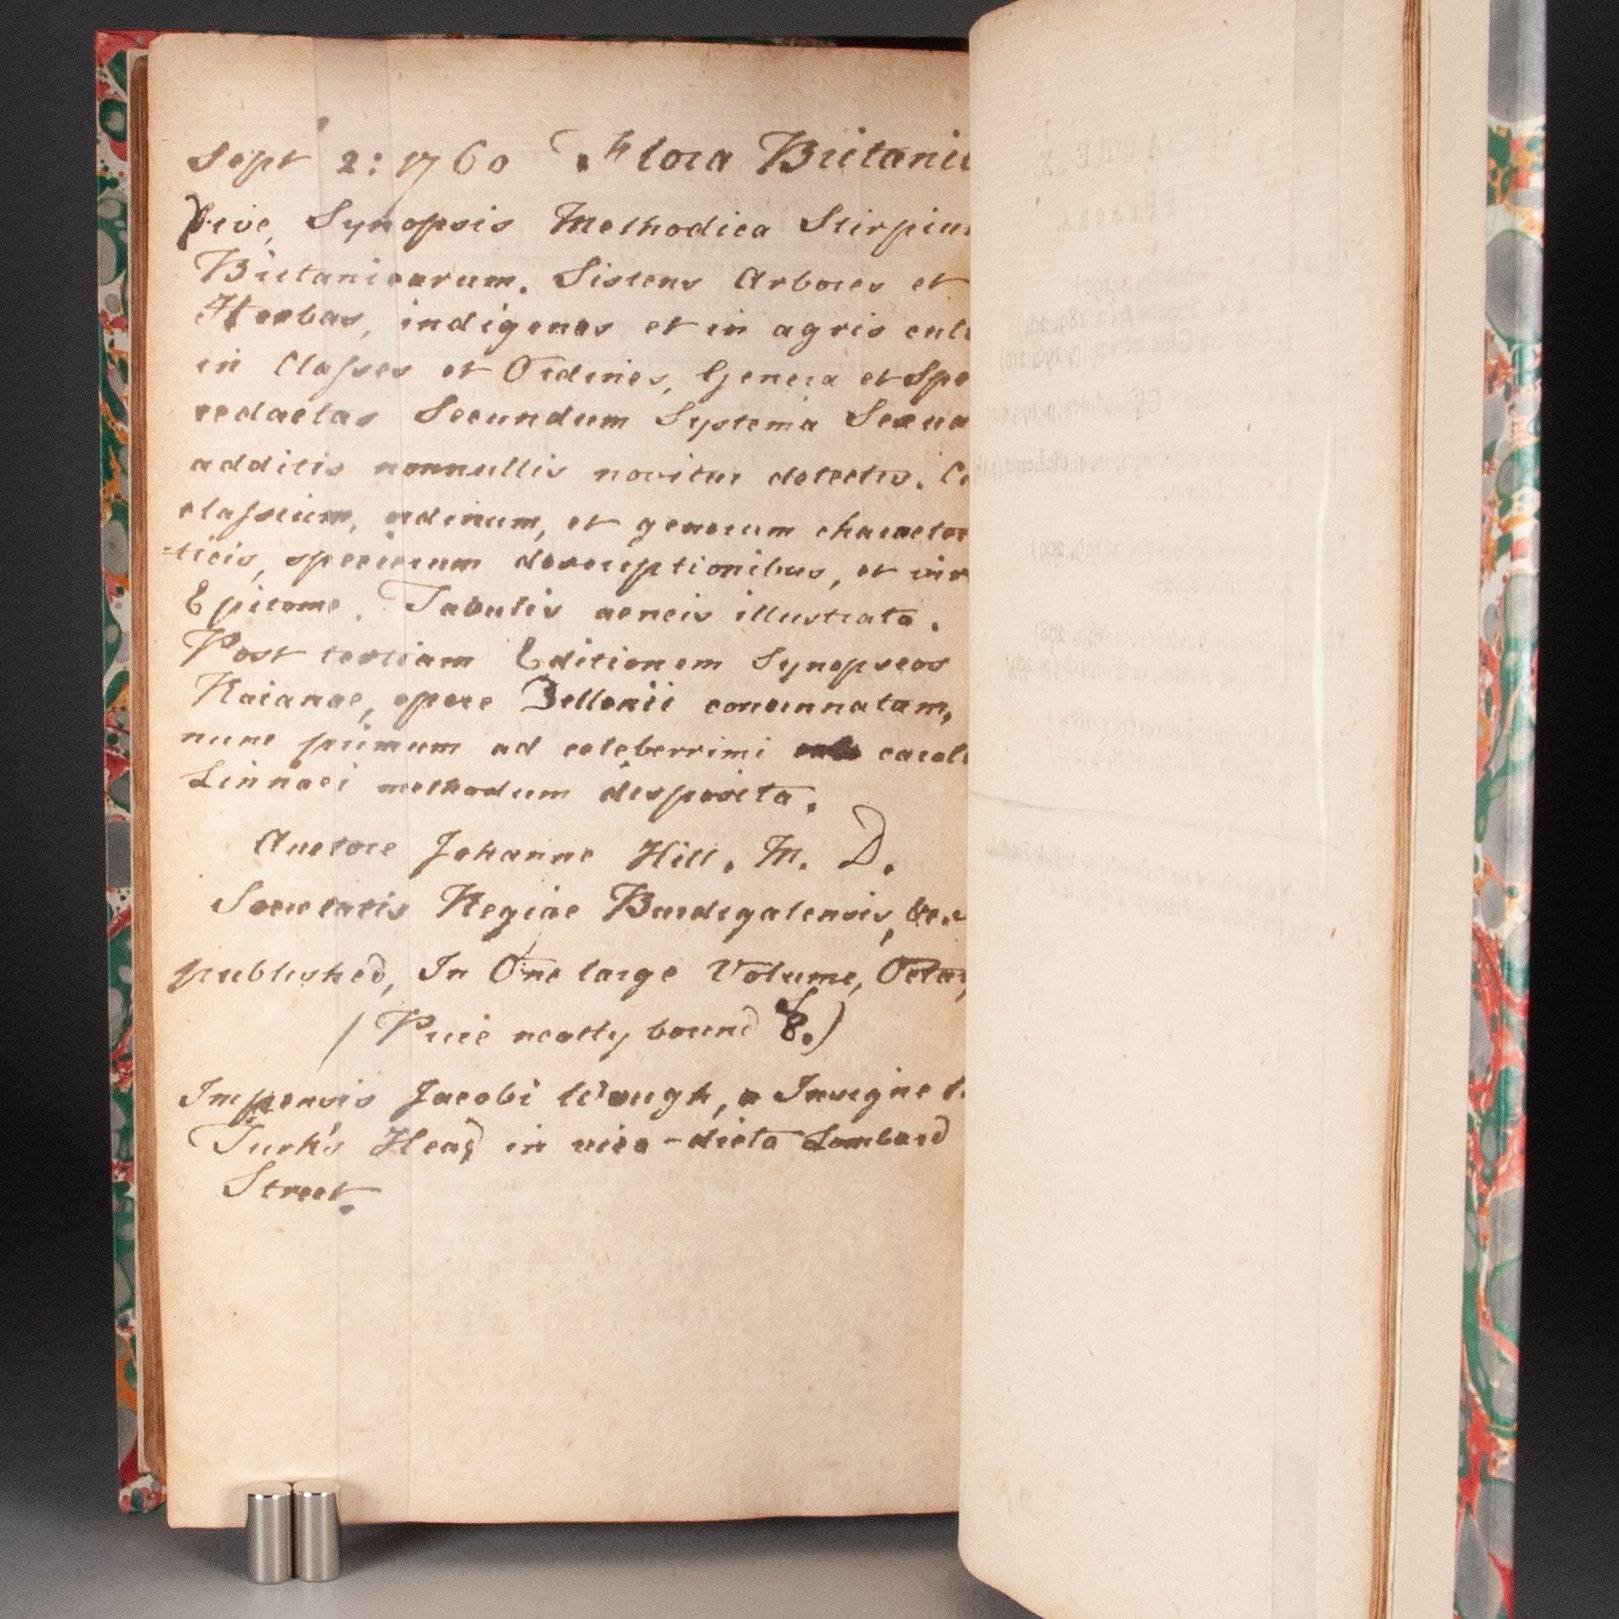 Sept 2: 1760 Flora Britanic
sive, Synopsis Methodica Stirpium
Britanicarum. Sistens Arbores et
Herbas, indigenas et in agris cult
in Classes et Ordines, Genera et Spe
redactas Secundum Systema Sexua
additis nonnullis noviter detectis. C
classium, ordinum, et generum character
=ticis, specierum descriptionibus, et vir
Epitome. Tabulis aeneis illustrata.
Post tertiam Editionem Synopseos
Raianae, opere Dellenii concinnatam,
nunc primum ad celeberrimi caroli
Linnaei methodum disposita.
Auctore Johanne Hill. M. D.
Societatis Regiae Burdigalensis, &c.
published, In One large Volume, Octav
(Price neatly bound 8.)
Impensis Jacobi Waugh, a Insigne t.
Turk's Head in vico-dicto Lombard
Street.